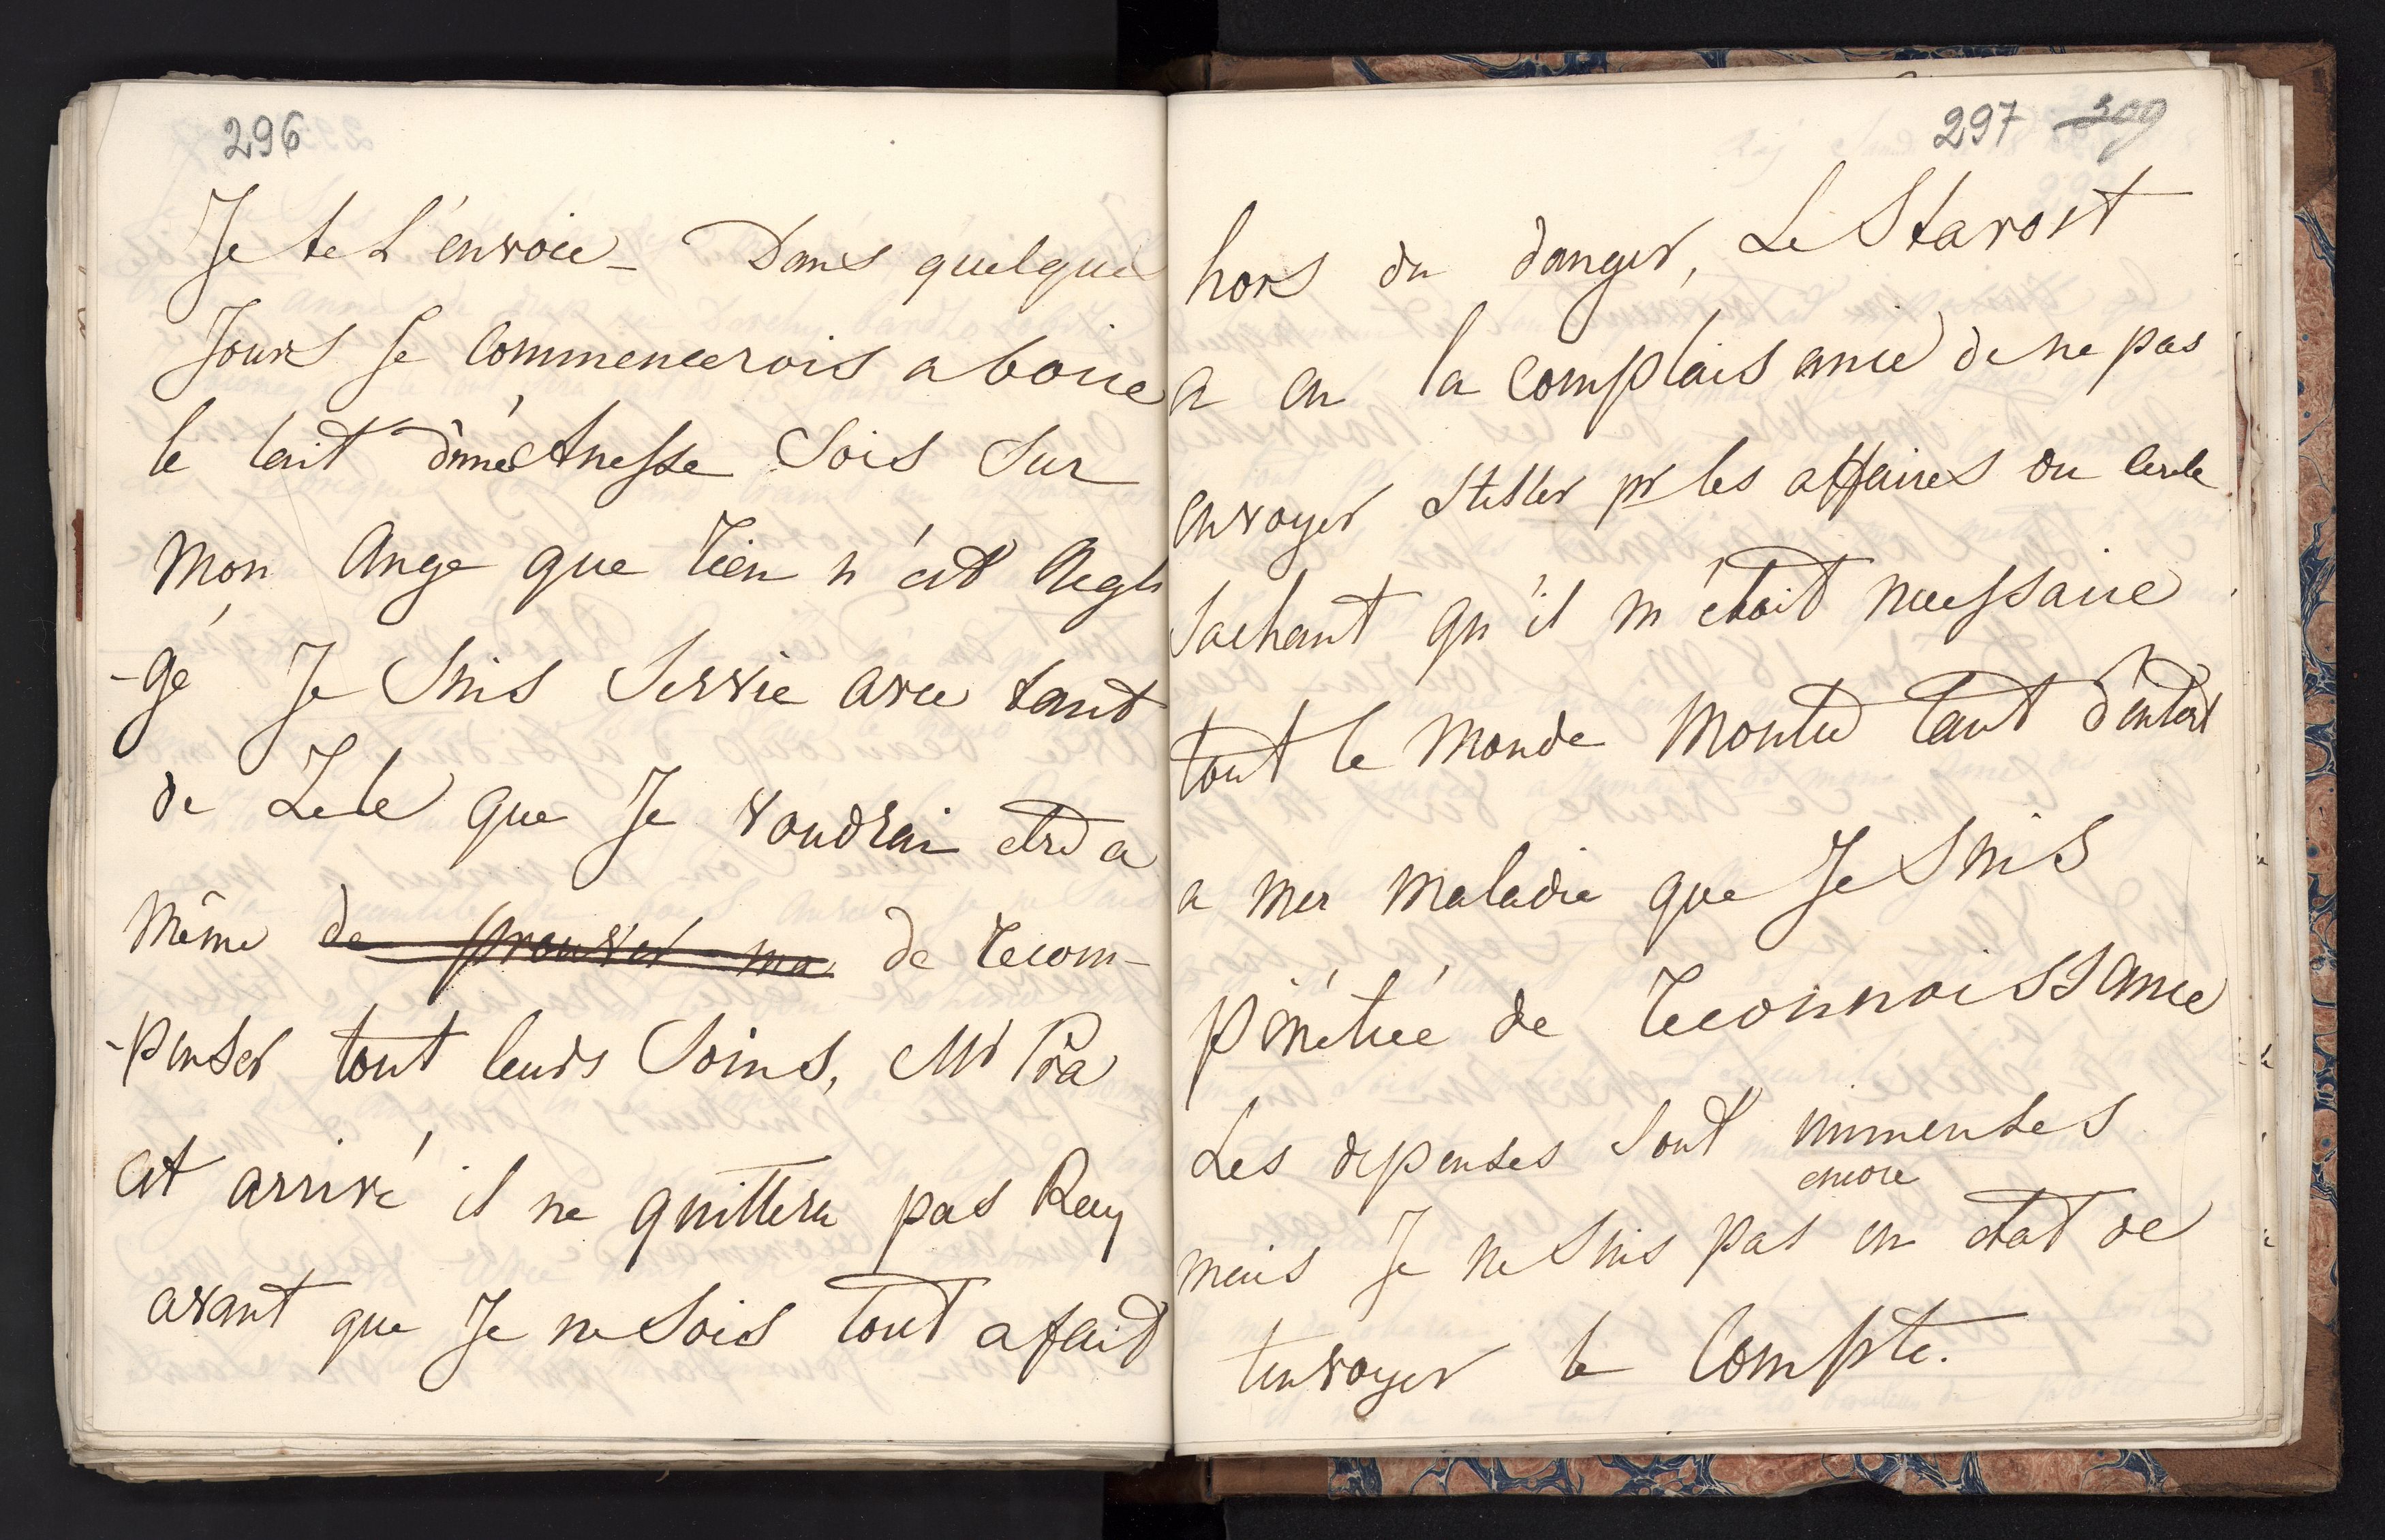 296
Je te L'envoie - Dans quelque
Jours Je commencerois a boire
le lait d'une Anesse Sois Sur
mon Ange que rien n'est negli
-gé Je Suis Servie avec tant
de Zele que Je voudrai etre a
même de prouver ma de recom-
-penser tout leurs Soins, Mr Pra
est arrivé il ne quittera pas Ray
avant que Je ne Sois tout a fait
297 309
hors du danger, Le Starost
a eu la complaisance de ne pas
envoyer Steller pr les affaires du
Sachant qu'il m'étoit necessaire
tout le monde Montre tant d'interet
a mer maladie que Je Suis
pénétrée de reconnoissance
Les depenses Sont immenses
encore
mais Je ne Suis pas en etat de
t'envoyer le Compte.